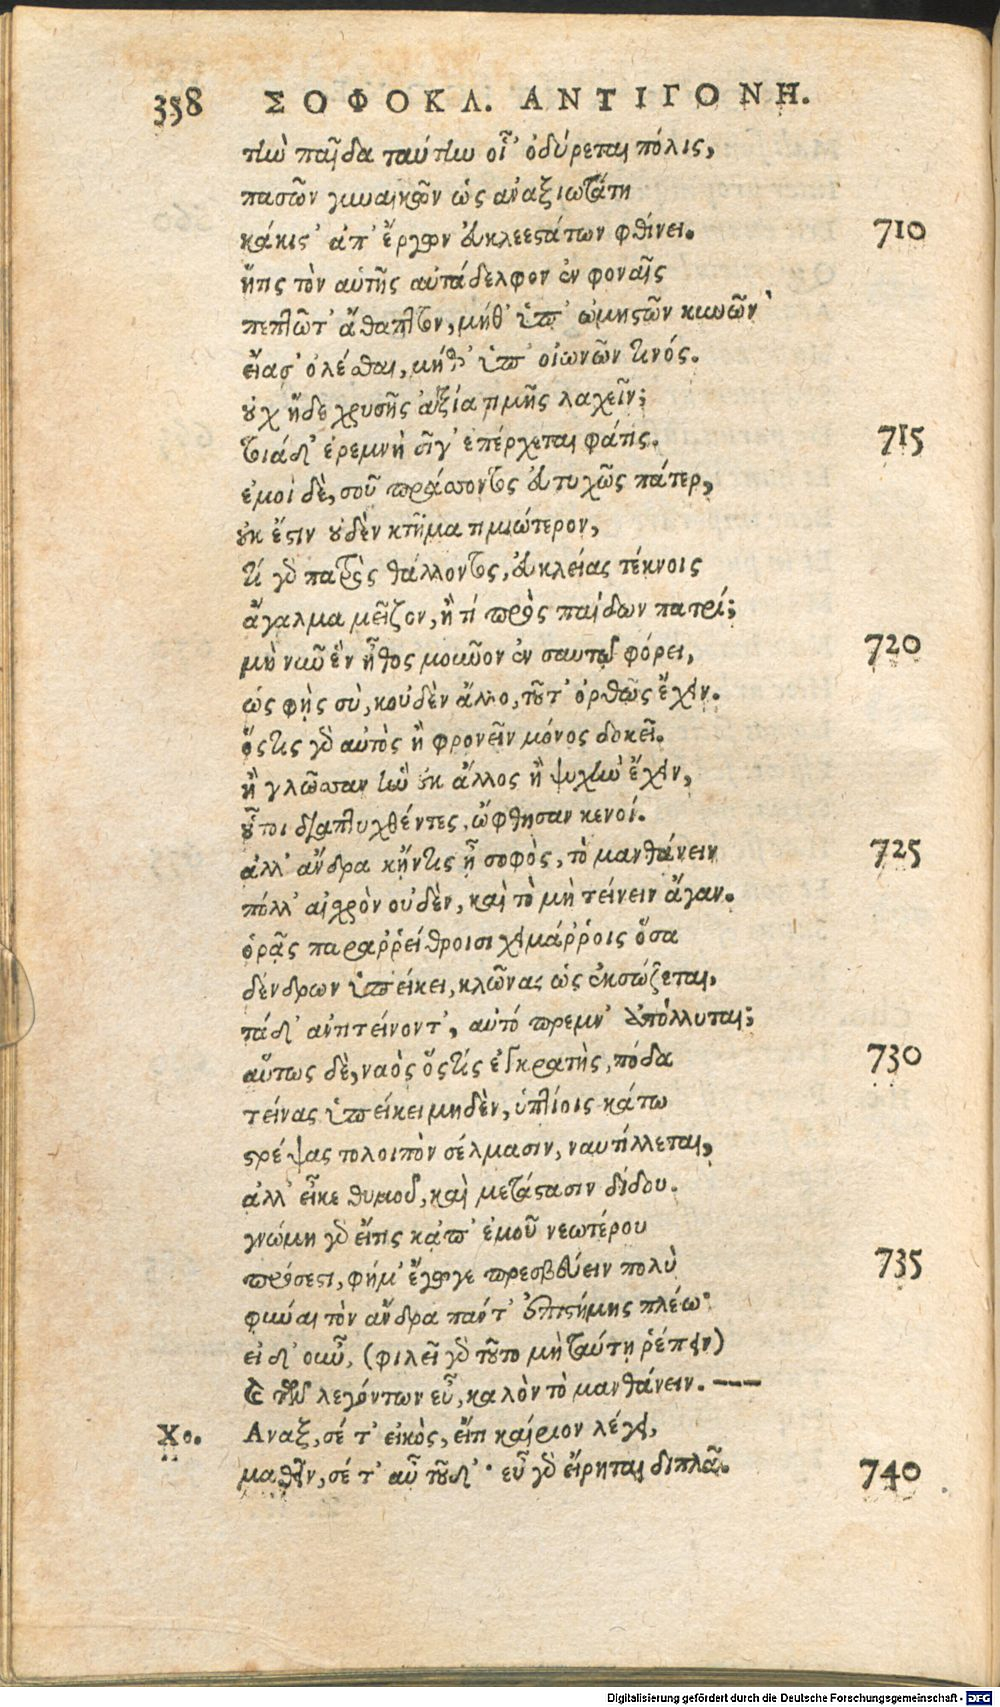 358 ΣΟΦΟΚΛ. ΑΝΤΙΓΟΝΗ.
τὴν παῖδα ταύτην οἷ' ὀδύρεται πόλις,
πασῶν γυναικῶν ὡς ἀναξιωτάτη
κάκιστ' ἀπ' ἔργων εὐκλεεστάτων φθίνει. 710
ἥτις τὸν αὑτῆς αὐτάδελφον ἐν φοναῖς
πεπτῶτ' ἄθαπτον, μήθ' ὑπ' ὠμηστῶν κυνῶν
εἴασ' ὀλέσθαι, μήθ' ὑπ' οἰωνῶν τινός.
οὐχ ἥδε χρυσῆς ἀξία τιμῆς λαχεῖν;
τοιάδ' ἐρεμνὴ σῖγ' ἐπέρχεται φάτις. 715
ἐμοὶ δὲ, σοῦ πράσσοντος εὐτυχῶς πάτερ,
οὐκ ἔστιν οὐδὲν κτῆμα τιμιώτερον,
τί γὰρ πατρὸς θάλλοντος, εὐκλείας τέκνοις
ἄγαλμα μεῖζον, ἢ τί πρὸς παίδων πατρί;
μὴ νῦν ἓν ἦθος μοῦνον ἐν σαυτῷ φόρει, 720
ὡς φῂς σὺ, κοὐδὲν ἄλλο, τοῦτ' ὀρθῶς ἔχειν.
ὅςτις γὰρ αὐτὸς ἢ φρονεῖν μόνος δοκεῖ.
ἢ γλῶσσαν ἣν οὐκ ἄλλος ἢ ψυχὴν ἔχειν,
οὗτοι διαπτυχθέντες, ὤφθησαν κενοί.
ἀλλ' ἄνδρα κἤντις ᾖ σοφὸς, τὸ μανθάνειν 725
πόλλ' αἰσχρὸν οὐδὲν, καὶ τὸ μὴ τείνειν ἄγαν.
ὁρᾷς παραῤῥείθροισι χειμάῤῥοις ὅσα
δένδρων ὑπείκει, κλῶνας ὡς ἐκσώζεται,
τάδ' ἀντιτείνοντ', αὐτόπρεμν' ἀπόλλυται;
αὕτως δὲ, ναὸς ὅςτις ἐγκρατὴς, πόδα 730
τείνας ὑπείκει μηδὲν, ὑπτίοις κάτω
στρέψας τολοιπὸν σέλμασιν, ναυτίλλεται,
ἀλλ' εἶκε θυμοῦ, καὶ μετάστασιν δίδου.
γνώμη γὰρ εἴτις κἀπ' ἐμοῦ νεωτέρου
πρόσεστι, φήμ' ἔγωγε πρεσβεύειν πολὺ 735
φῦναι τὸν ἄνδρα πάντ' ἐπιστήμης πλέω·
εἰ δ' οὖν, (φιλεῖ γὰρ τοῦτο μὴ ταύτῃ ῥέπειν)
καὶ τῶν λεγόντων εὖ, καλὸν τὸ μανθάνειν. ---
Χο. Αναξ, σέ τ' εἰκὸς, εἴτι καίριον λέγει,
μαθεῖν, σέ τ' αὖ τοῦδ'· εὖ γὰρ εἴρηται διπλᾶ. 740
Digitalisierung gefördert durch die Deutsche Forschungsgemeinschaft - DFG